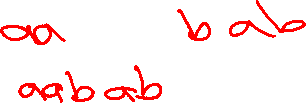 aa bab
aabab